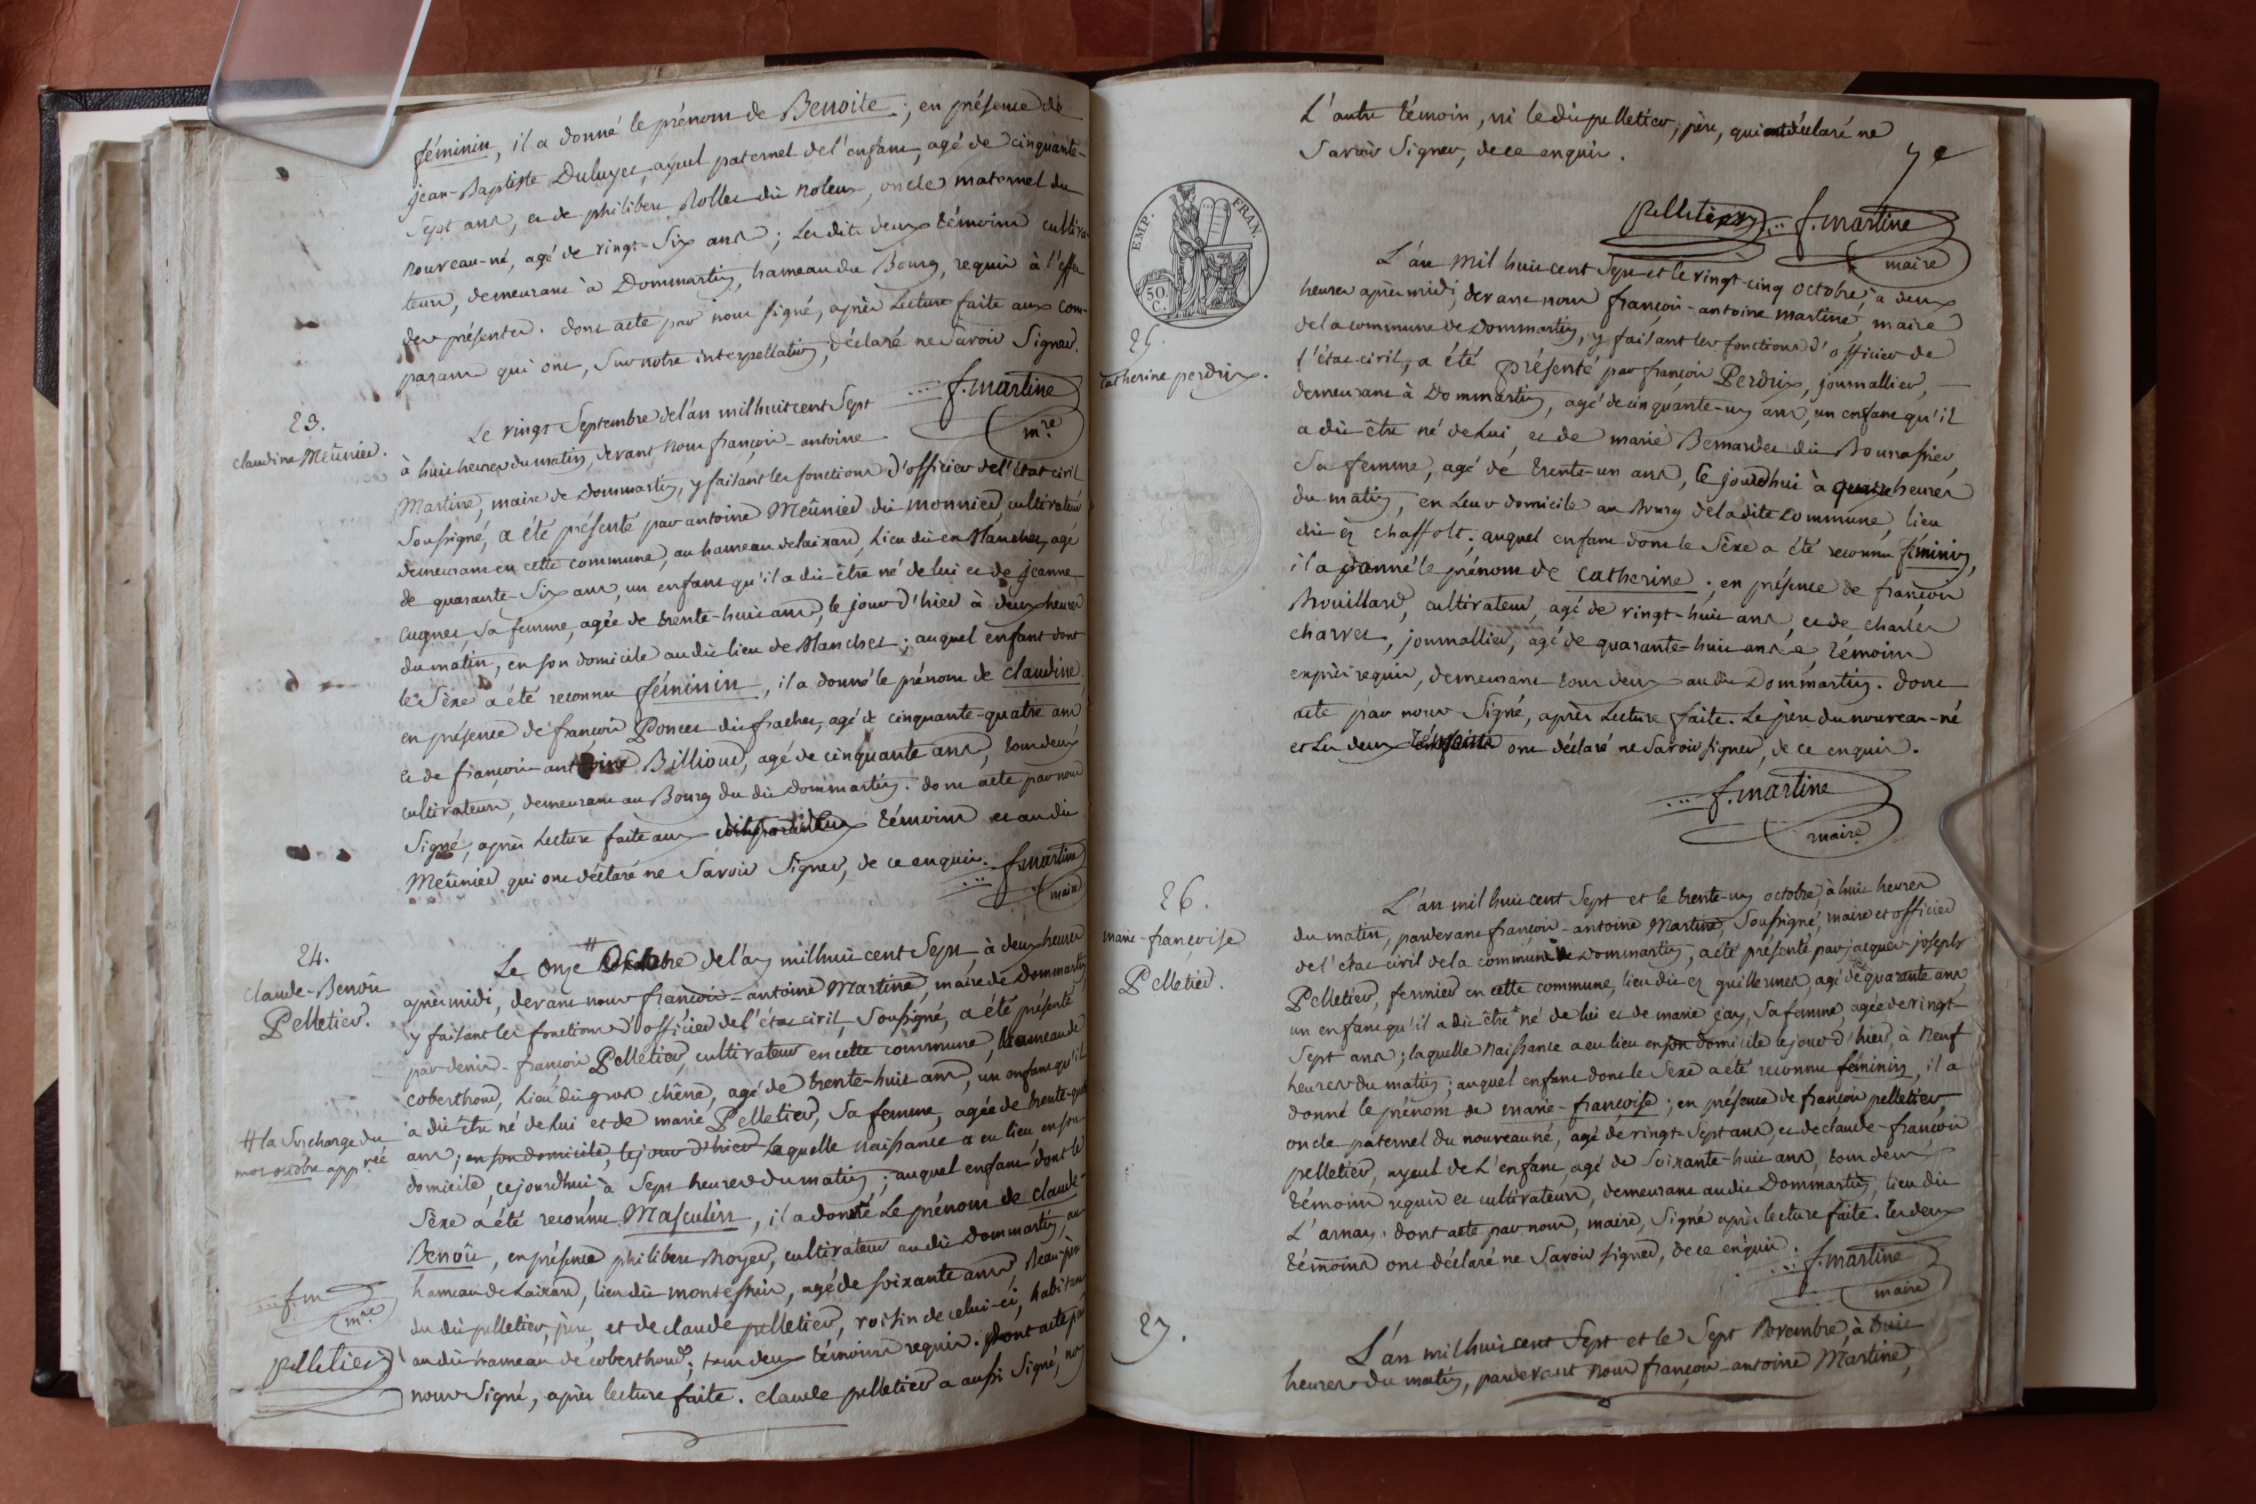 féminin, il a donné le prénom de Benoite ; en présence de
jean-Baptiste Duluyer, ayeul paternel de l'enfant, agé de cinquante-
Sept ans, et de philibert Rollet dit noleux, oncle maternel du
nouveau-né, agé de vingt-Six ans ; Les dits deux témoins cultiva-
teurs, demeurant à Dommartin, hameau du Bourg, requis à l'effet
des présentes. dont acte par nous signé, après Lecture faite aux com-
parans qui ont, Sur notre interpellation, déclaré ne Savoir Signer.
f. martine
mre
23.
claudine Meûnier.
Le vingt Septembre de l'an mil huit cent Sept
à huit heures du matin, devant nous françois-antoine
Martine, maire de Dommartin, y faisant les fonctions d'officier de l'état civil
Soussigné, a été présenté par antoine Meûnier dit monnier, cultivateur
demeurant en cette commune, au hameau de Laizard, Lieu dit en Manches, agé
de quarante-Six ans, un enfant qu'il a dit être né de lui et de jeanne
cugnet, Sa femme, agée de trente-huit ans, le jour d'hier à deux heures
du matin, en son domicile au dit lieu de Manches ; auquel enfant dont
le Sèxe a été reconnu féminin, il a donné le prénom de claudine
en présence de françois Poncet dit frachet, agé de cinquante-quatre ans
et de françois-antoine Billioud, agé de cinquante ans, tous deux
cultivateurs, demeurant au Bourg du dit Dommartin. dont acte par nous
Signé, après Lecture faite aux témoins et au dit
Meûnier qui ont déclaré ne Savoir Signer, de ce enquis.
f. martine
maire
24.
Claude-Benoît
Pelletier.
Le onze # octobre de l'an mil huit cent Sept, à deux heures
après midi, devant nous françois-antoine Martine, maire de Dommartin
y faisant les fonctions d'officier de l'état civil, Soussigné, a été présenté
par denis-françois Pelletier, cultivateur en cette commune, hameau de
coberthoud, Lieu dit gros chêne, agé de trente-huit ans, un enfant qu'il
a dit être né de Lui et de marie Pelletier, Sa femme, agée de trente-quatre
ans ; en son domicile, le jour d'hier Laquelle naissance a eu lieu en son
domicile, ce jourd'hui à Sept heures du matin ; auquel enfant dont le
Sèxe a été reconnu Masculin, il a donné le prénom de claude-
Benoît, en présence philibert Moyer, cultivateur au dit Dommartin, au
hameau de Laizard, lieu dit montessuis, agé de soixante ans Beau-père
du dit pelletier, père, et de claude pelletier, voisin de celui-ci, habitant
au dit hameau de coberthoud ; tous deux témoins requis. dont acte par
nous Signé, après lecture faite. claude pelletier a aussi Signé, non
# la Surcharge du
mot octobre appr.vée
f. m
mre
pelletier
L'autre témoin, ni le dit pelletier, père, qui ont déclaré ne
Savoir Signer, de ce enquis.
pelletier
f. martine
maire
EMP. FRAN.
50. C.
25.
Catherine perdrix.
L'an mil huit cent Sept et le vingt-cinq octobre, à deux
heures après midi, devant nous françois-antoine martine, maire
de la commune de Dommartin, y faisant les fonctions d'officier de
l'état civil, a été présenté par françois Perdrix, journallier,
demeurant à Dommartin, agé de cinquante-un ans, un enfant qu'il
a dit être né de Lui, et de marie Bernardet dit Bourassier,
Sa femme, agé de trente-un ans, ce jourdhui à quatre heures
du matin, en Leur domicile au Bourg de la dite commune, lieu
dit ez chaffolt ; auquel enfant dont le Sèxe a été reconnu féminin,
il a donné le prénom de Catherine ; en présence de françois
Mouillard, cultivateur, agé de vingt-huit ans, et de charles
charvet, journallier, agé de quarante-huit ans, témoins
exprès requis, demeurant tous deux au dit Dommartin. dont
acte par nous Signé, après Lecture faite. Le père du nouveau-né
et Les deux témoins ont déclaré ne Savoir signer, de ce enquis.
f. martine
maire
26.
marie-françoise
Pelletier.
L'an mil huit cent Sept et le trente-un octobre, à huit heures
du matin, pardevant françois-antoine Martine, Soussigné, maire et officier
de l'état civil de la commune de Dommartin, a été présenté par jacques-joseph
Pelletier, fermier en cette commune, lieu dit ez guillermes, agé de quarante ans
un enfant qu'il a dit être né de lui et de marie jay, Sa femme, agée de vingt-
Sept ans ; laquelle Naissance a eu lieu en son domicile le jour d'hier, à neuf
heures du matin ; auquel enfant dont le Sèxe a été reconnu féminin, il a
donné le prénom de marie-françoise ; en présence de françois pelletier
oncle paternel du nouveau né, agé de vingt-Sept ans, et de claude-françois
pelletier, ayeul de L'enfant, agé de Soixante-huit ans, tous deux
témoins requis et cultivateurs, demeurant au dit Dommartin, lieu dit
L'arnay. dont acte par nous, maire, Signé après lecture faite. les deux
témoins ont déclaré ne Savoir signer, de ce enquis.
f. martine
maire
27.
L'an mil huit cent Sept et le Sept Novembre, à huit
heures du matin, pardevant nous françois-antoine Martine,